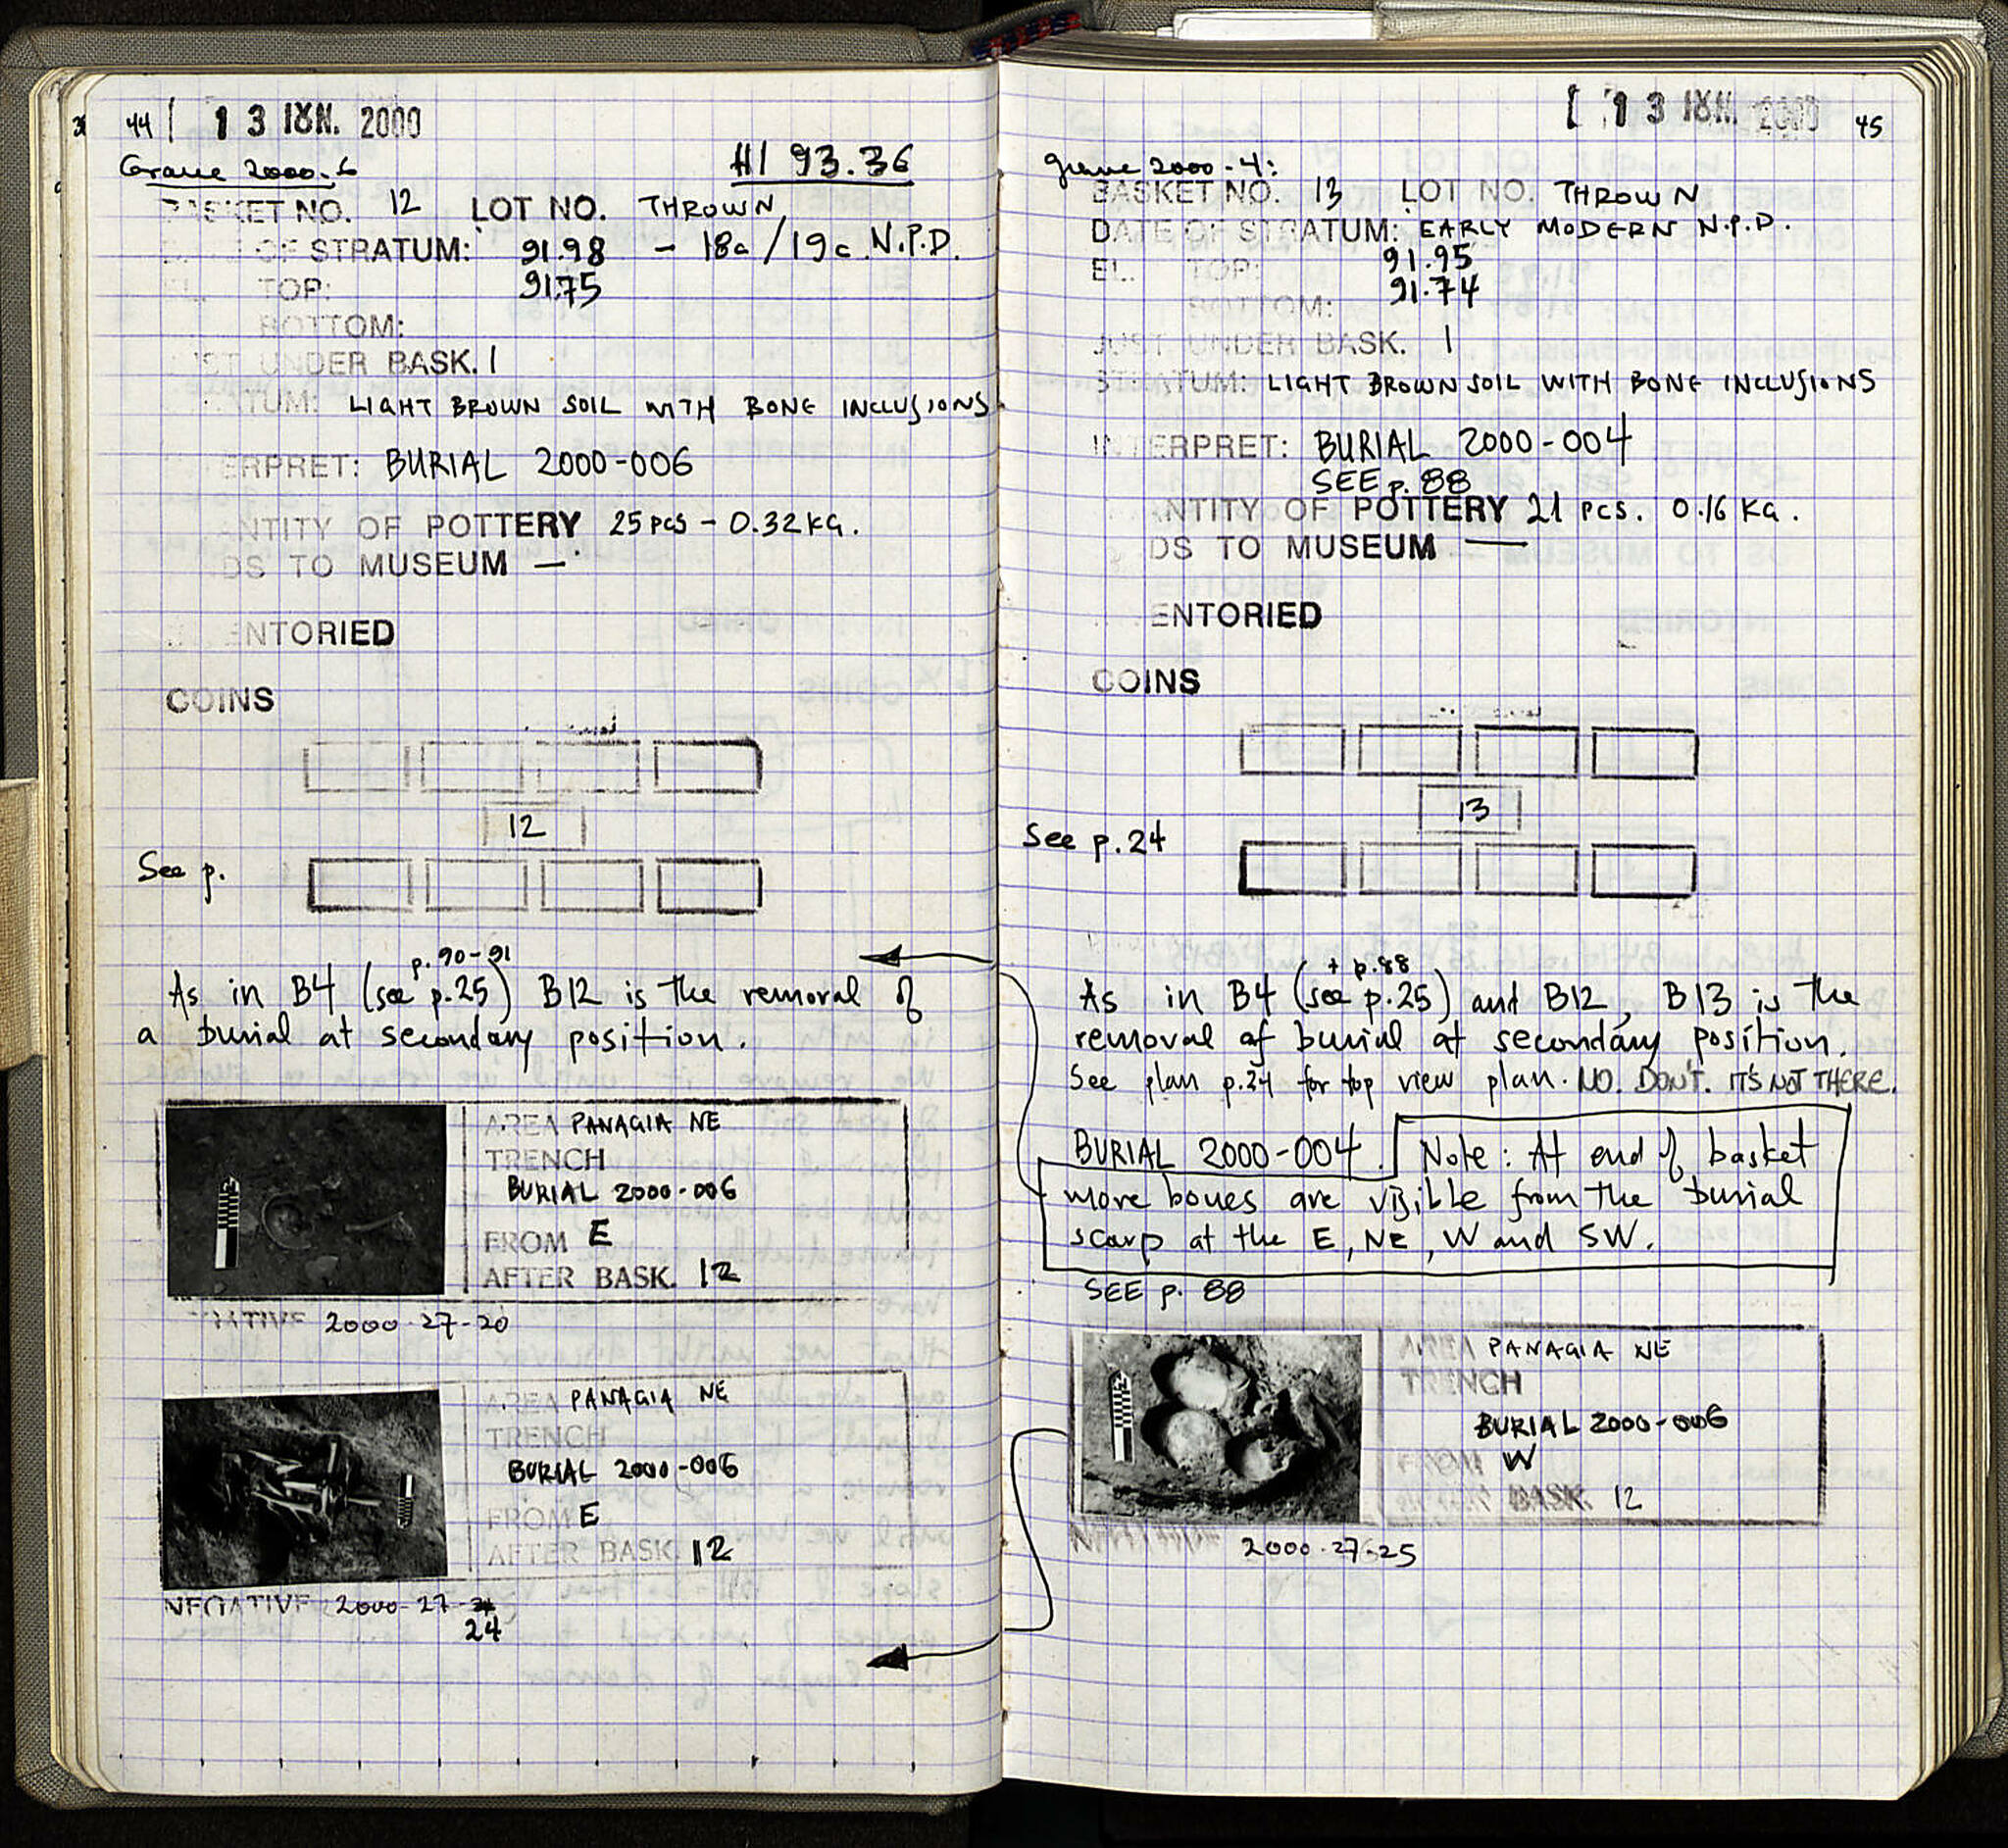 44
1 3 ΙΟΥΝ. 2000
Grave 2000-6
HI 93.36
BASKET NO. 12 LOT NO. THROWN
OF STRATUM: 91.98 - 18c/19c N.P.D.
TOP: 91.75
BOTTOM:
UST UNDER BASK. 1
TUM: LIGHT BROWN SOIL WITH BONE INCLUSIONS
ERPRET: BURIAL 2000-006
ANTITY OF POTTERY 25 PCS - 0.32 KG.
DS TO MUSEUM —
ENTORIED
COINS
12
See p.
p. 90-91
As in B4 (see p.25) B12 is the removal of
a burial at secondary position.
AREA PANAGIA NE
TRENCH
BURIAL 2000-006
FROM E
AFTER BASK. 12
ATIVE 2000-27-20
AREA PANAGIA NE
TRENCH
BURIAL 2000-006
FROM E
AFTER BASK. 12
NEGATIVE 2000-27-
24
1 3 ΙΟΥΝ. 2000
45
grave 2000-4:
BASKET NO. 13 LOT NO. THROWN
DATE OF STRATUM: EARLY MODERN N.P.D.
EL. TOP: 91.95
91.74
BOTTOM:
JUST UNDER BASK. 1
STRATUM: LIGHT BROWN SOIL WITH BONE INCLUSIONS
INTERPRET: BURIAL 2000-004
SEE p. 88
ANTITY OF POTTERY 21 PCS. 0.16 KG.
DS TO MUSEUM —
ENTORIED
COINS
13
See p.24
+ p.88
As in B4 (see p.25) and B12, B13 is the
removal of burial at secondary position.
See plan p.24 for top view plan. NO. DON'T. IT'S NOT THERE.
BURIAL 2000-004. Note: At end of basket
more bones are visible from the burial
scarp at the E, NE, W and SW.
SEE p. 88
AREA PANAGIA NE
TRENCH
BURIAL 2000-006
FROM W
BASK. 12
NEGATIVE 2000-27-25